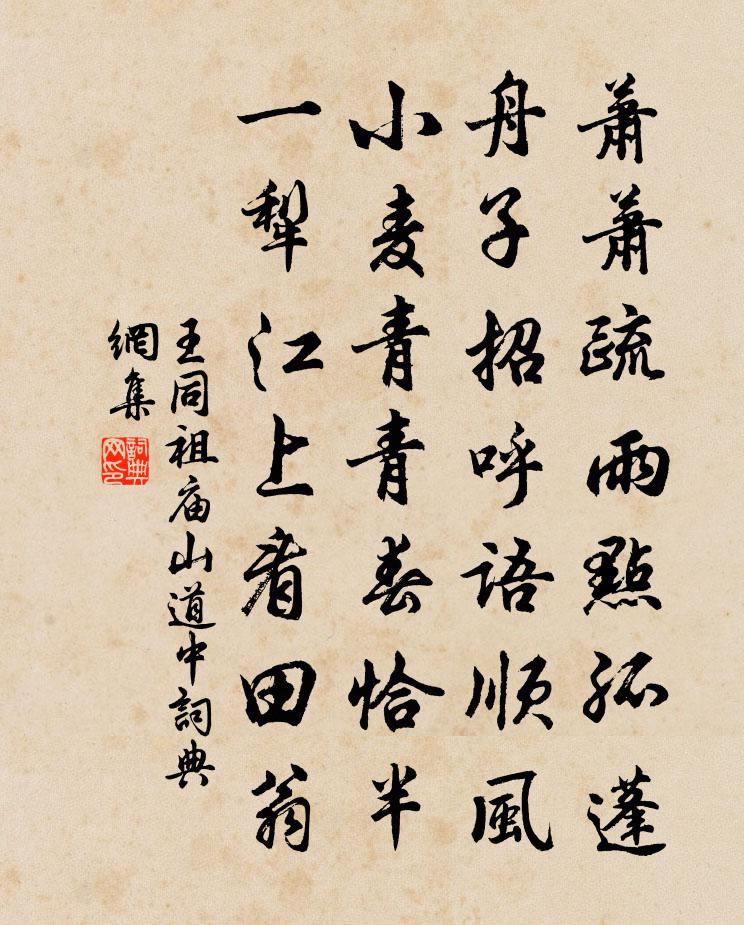 蕭蕭疏雨點孤蓬
舟子招呼語順風
小麦青青春恰半
一犁江上看田翁
王同祖庙山道中詞典
網集
詞典网印